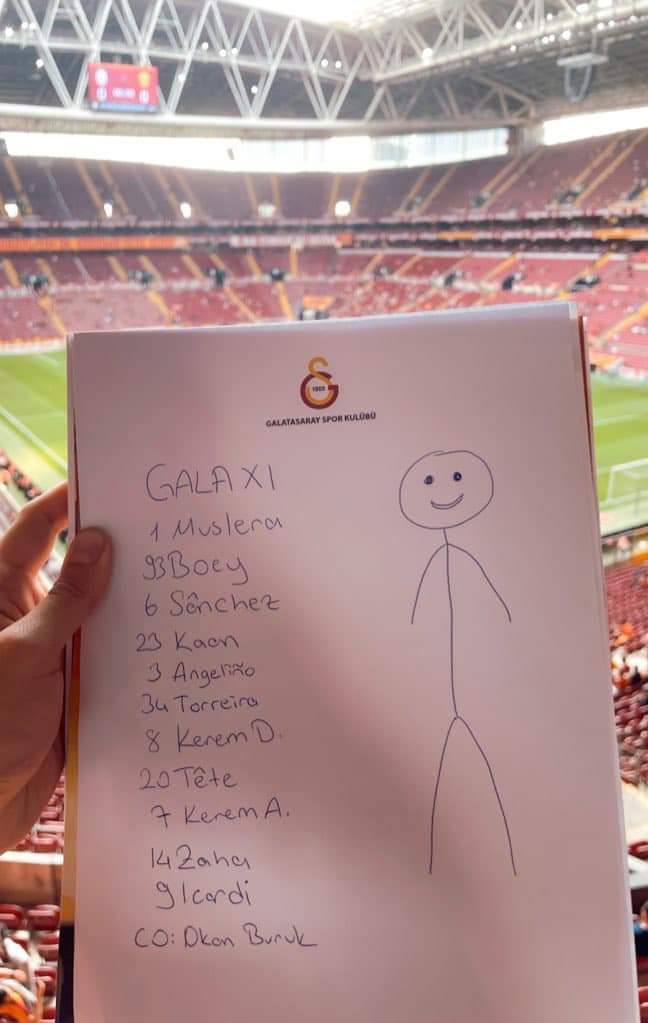 1905
GALATASARAY SPOR KULÜBÜ
GALA XI
1 Muslera
93 Boey
6 Sânchez
23 Kaan
3 Angeliño
34 Torreira
8 Kerem D.
20 Tête
7 Kerem A.
14 Zaha
9 Icardi
CO: Okan Buruk